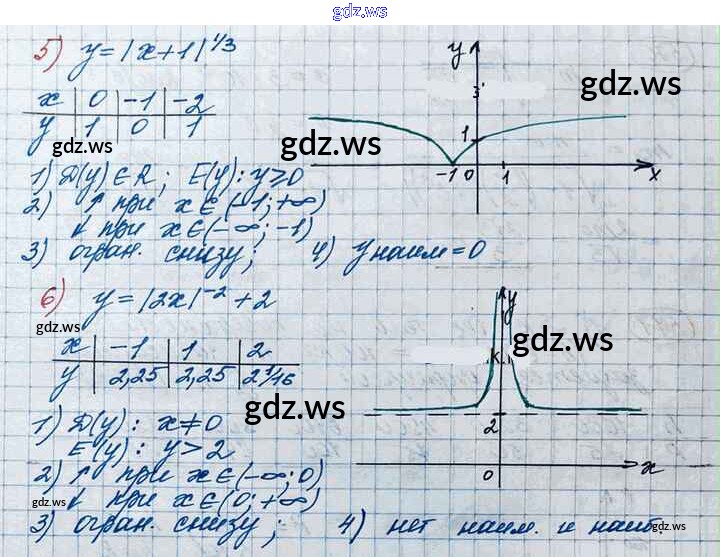 gdz.ws
5) y = |x+1|^1/3
x | 0 | -1 | -2
y | 1 | 0 | 1
1) D(y) ∈ R; E(y): y ≥ 0
2) ↑ при x ∈ (-1; +∞)
↓ при x ∈ (-∞; -1)
3) огран. снизу; 4) y наим = 0
y
3
1
-1 0 1 x
gdz.ws
gdz.ws
6) y = |2x|^-2 + 2
x | -1 | 1 | 2
y | 2,25 | 2,25 | 2 1/16
1) D(y): x ≠ 0
E(y): y > 2
2) ↑ при x ∈ (-∞; 0)
↓ при x ∈ (0; +∞)
3) огран. снизу; 4) нет наим. и наиб.
y
2
0 x
gdz.ws
gdz.ws
gdz.ws
gdz.ws
gdz.ws